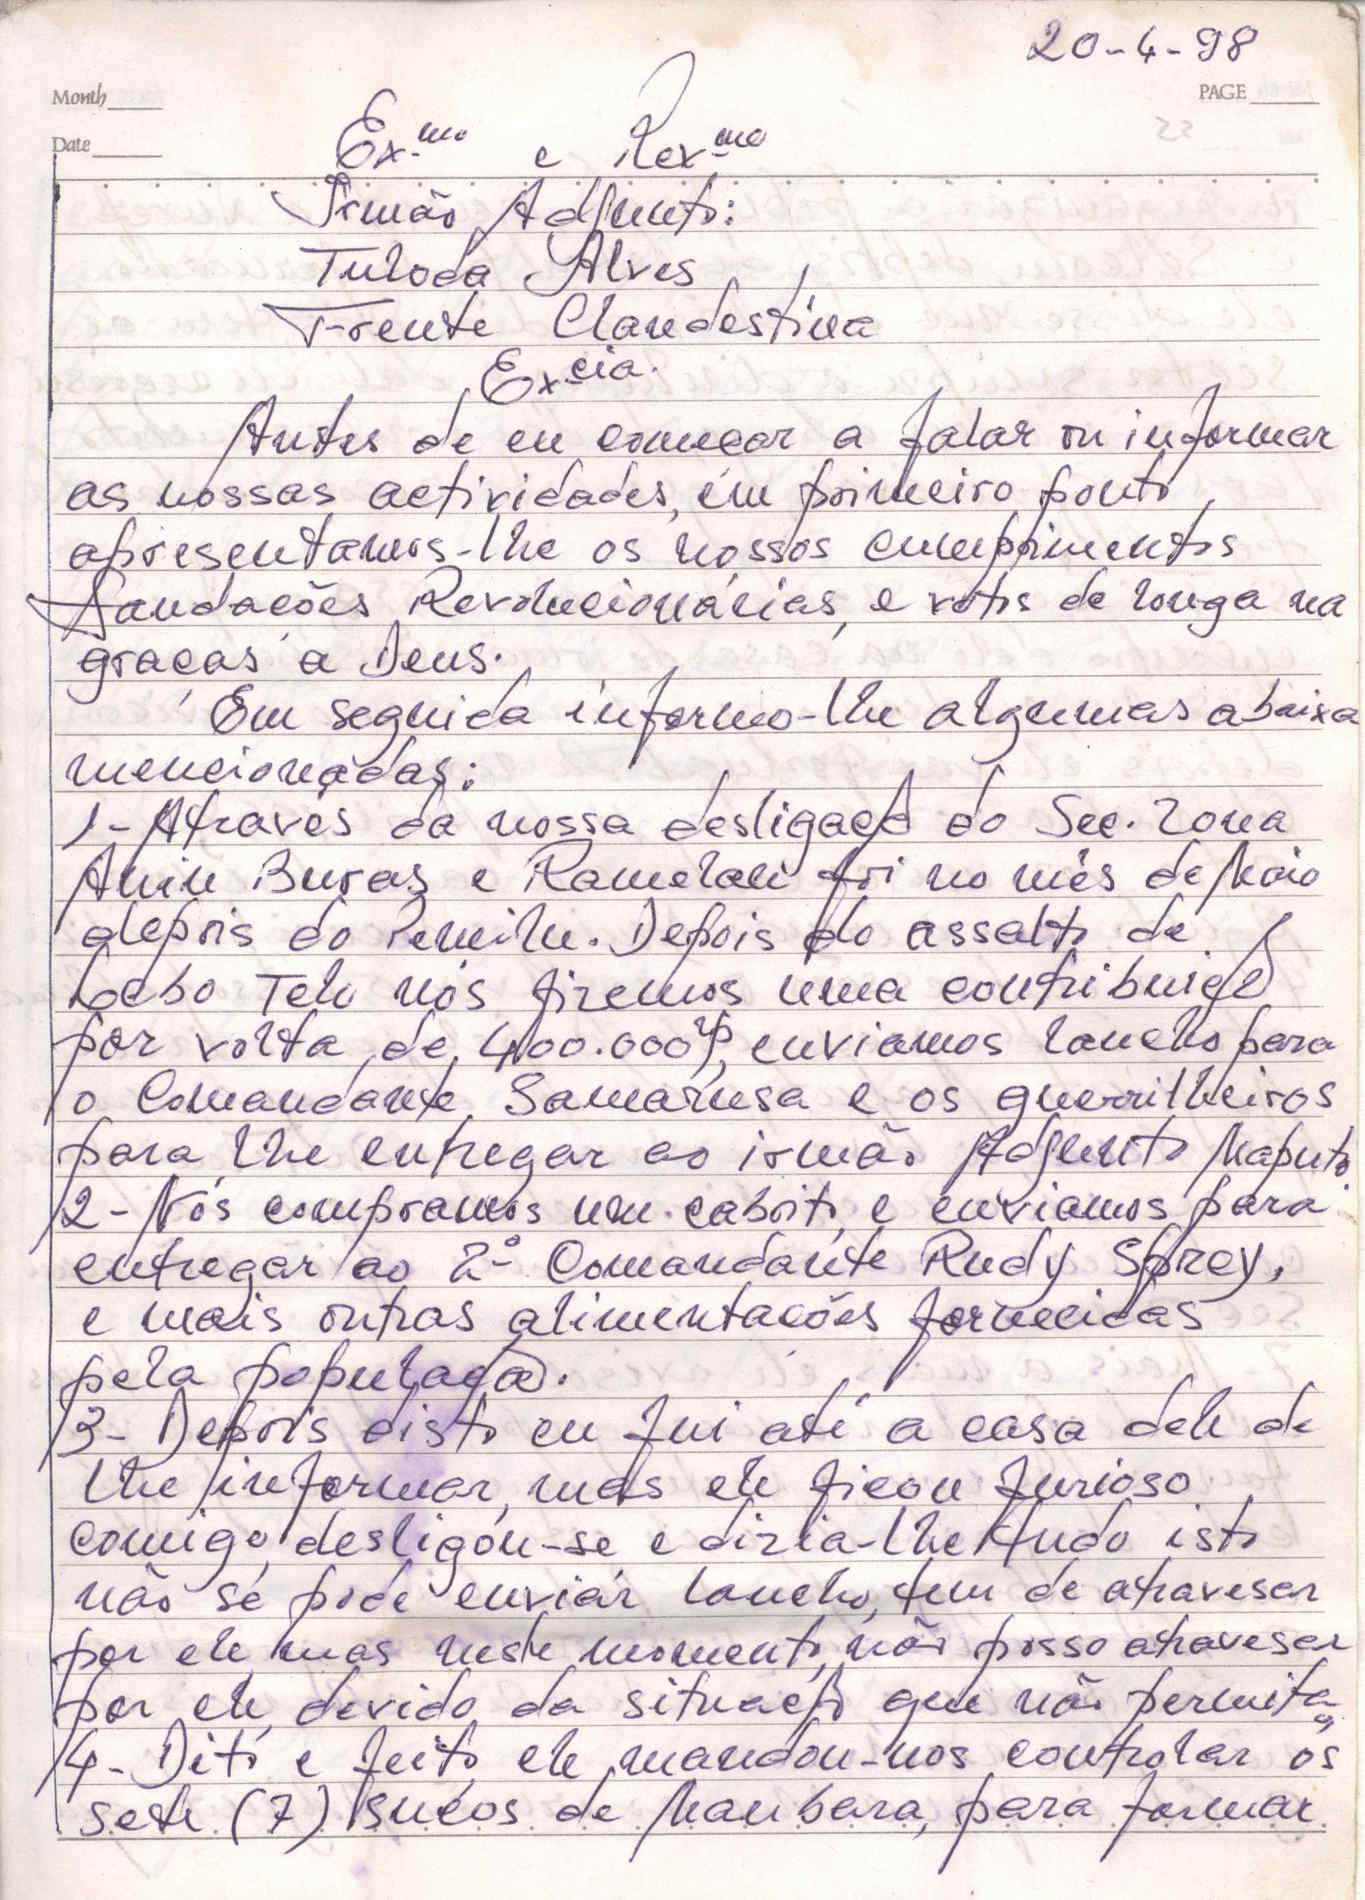 20-4-98
Month
PAGE
Date
Ex.mo e Rex.mo
Irmão Adjunto:
Tuloda Alves
Frente Clandestina
Ex.cia.
Antes de eu começar a falar ou informar
as nossas actividades, em primeiro ponto,
apresentamos-lhe os nossos cumprimentos
Saudações Revolucionárias, e votos de longa na
graças a Deus.
Em seguida informo-lhe algumas abaixa
mencionadas:
1- Através da nossa desligação do Sec. Zona
Anin Buras e Ramelau foi no mês de Maio
depois do Pemilu. Depois do assalto de
Lebo Telo nós fizemos uma contribuição
por volta de 400.000rp, enviamos lancho para
o Comandante Samarusa e os guerrilheiros
para lhe entregar ao irmão Adjunto Maputo.
2- Nós compramos um cabrito e enviamos para
entregar ao 2º Comandante Rudy Sprey,
e mais outras alimentações fornecidas
pela população.
3- Depois disto eu fui até a casa dele de
lhe informar, mas ele ficou furioso
comigo, desligou-se e dizia-lhe tudo isto
não se pode enviar lancho, tem de atravesar
por ele, mas neste momento, não posso atravesar
por ele, devido da situação que não permita
4- Dito e feito ele mandou-nos controlar os
sete (7) sucos de Maubara, para formar